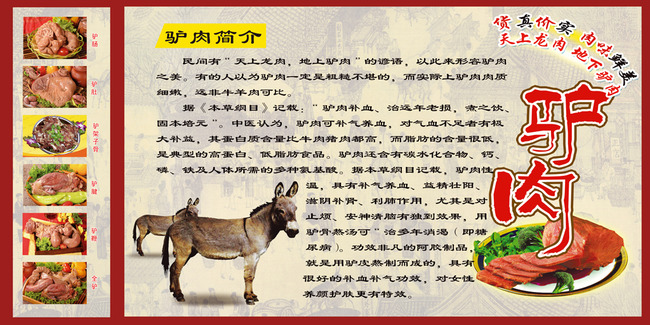 驴肉简介
民间有"天上龙肉，地上驴肉"的谚语，以此来形容驴肉
之美。有的人以为驴肉一定是粗糙不堪的，而实际上驴肉肉质
细嫩，远非牛羊肉可比。
据《本草纲目》记载："驴肉补血、治远年老损，煮之饮、
固本培元"。中医认为，驴肉可补气养血，对气血不足者有极
大补益，其蛋白质含量比牛肉猪肉都高，而脂肪的含量很低，
是典型的高蛋白、低脂肪食品。驴肉还含有碳水化合物、钙、
磷、铁及人体所需的多种氨基酸。据本草纲目记载，驴肉性
温，具有补气养血、益精壮阳、
滋阴补肾、利肺作用，尤其是对
止烦、安神清脑有独到效果，用
驴骨熬汤可"治多年消渴（即糖
尿病）。功效非凡的阿胶制品，
就是用驴皮熬制而成的，具有
很好的补血补气功效，对女性
养颜护肤更有特效。
货真价实 肉味鲜美
天上龙肉 地下驴肉
驴肉
驴肠
驴肚
驴架子骨
驴腱
驴鞭
全驴